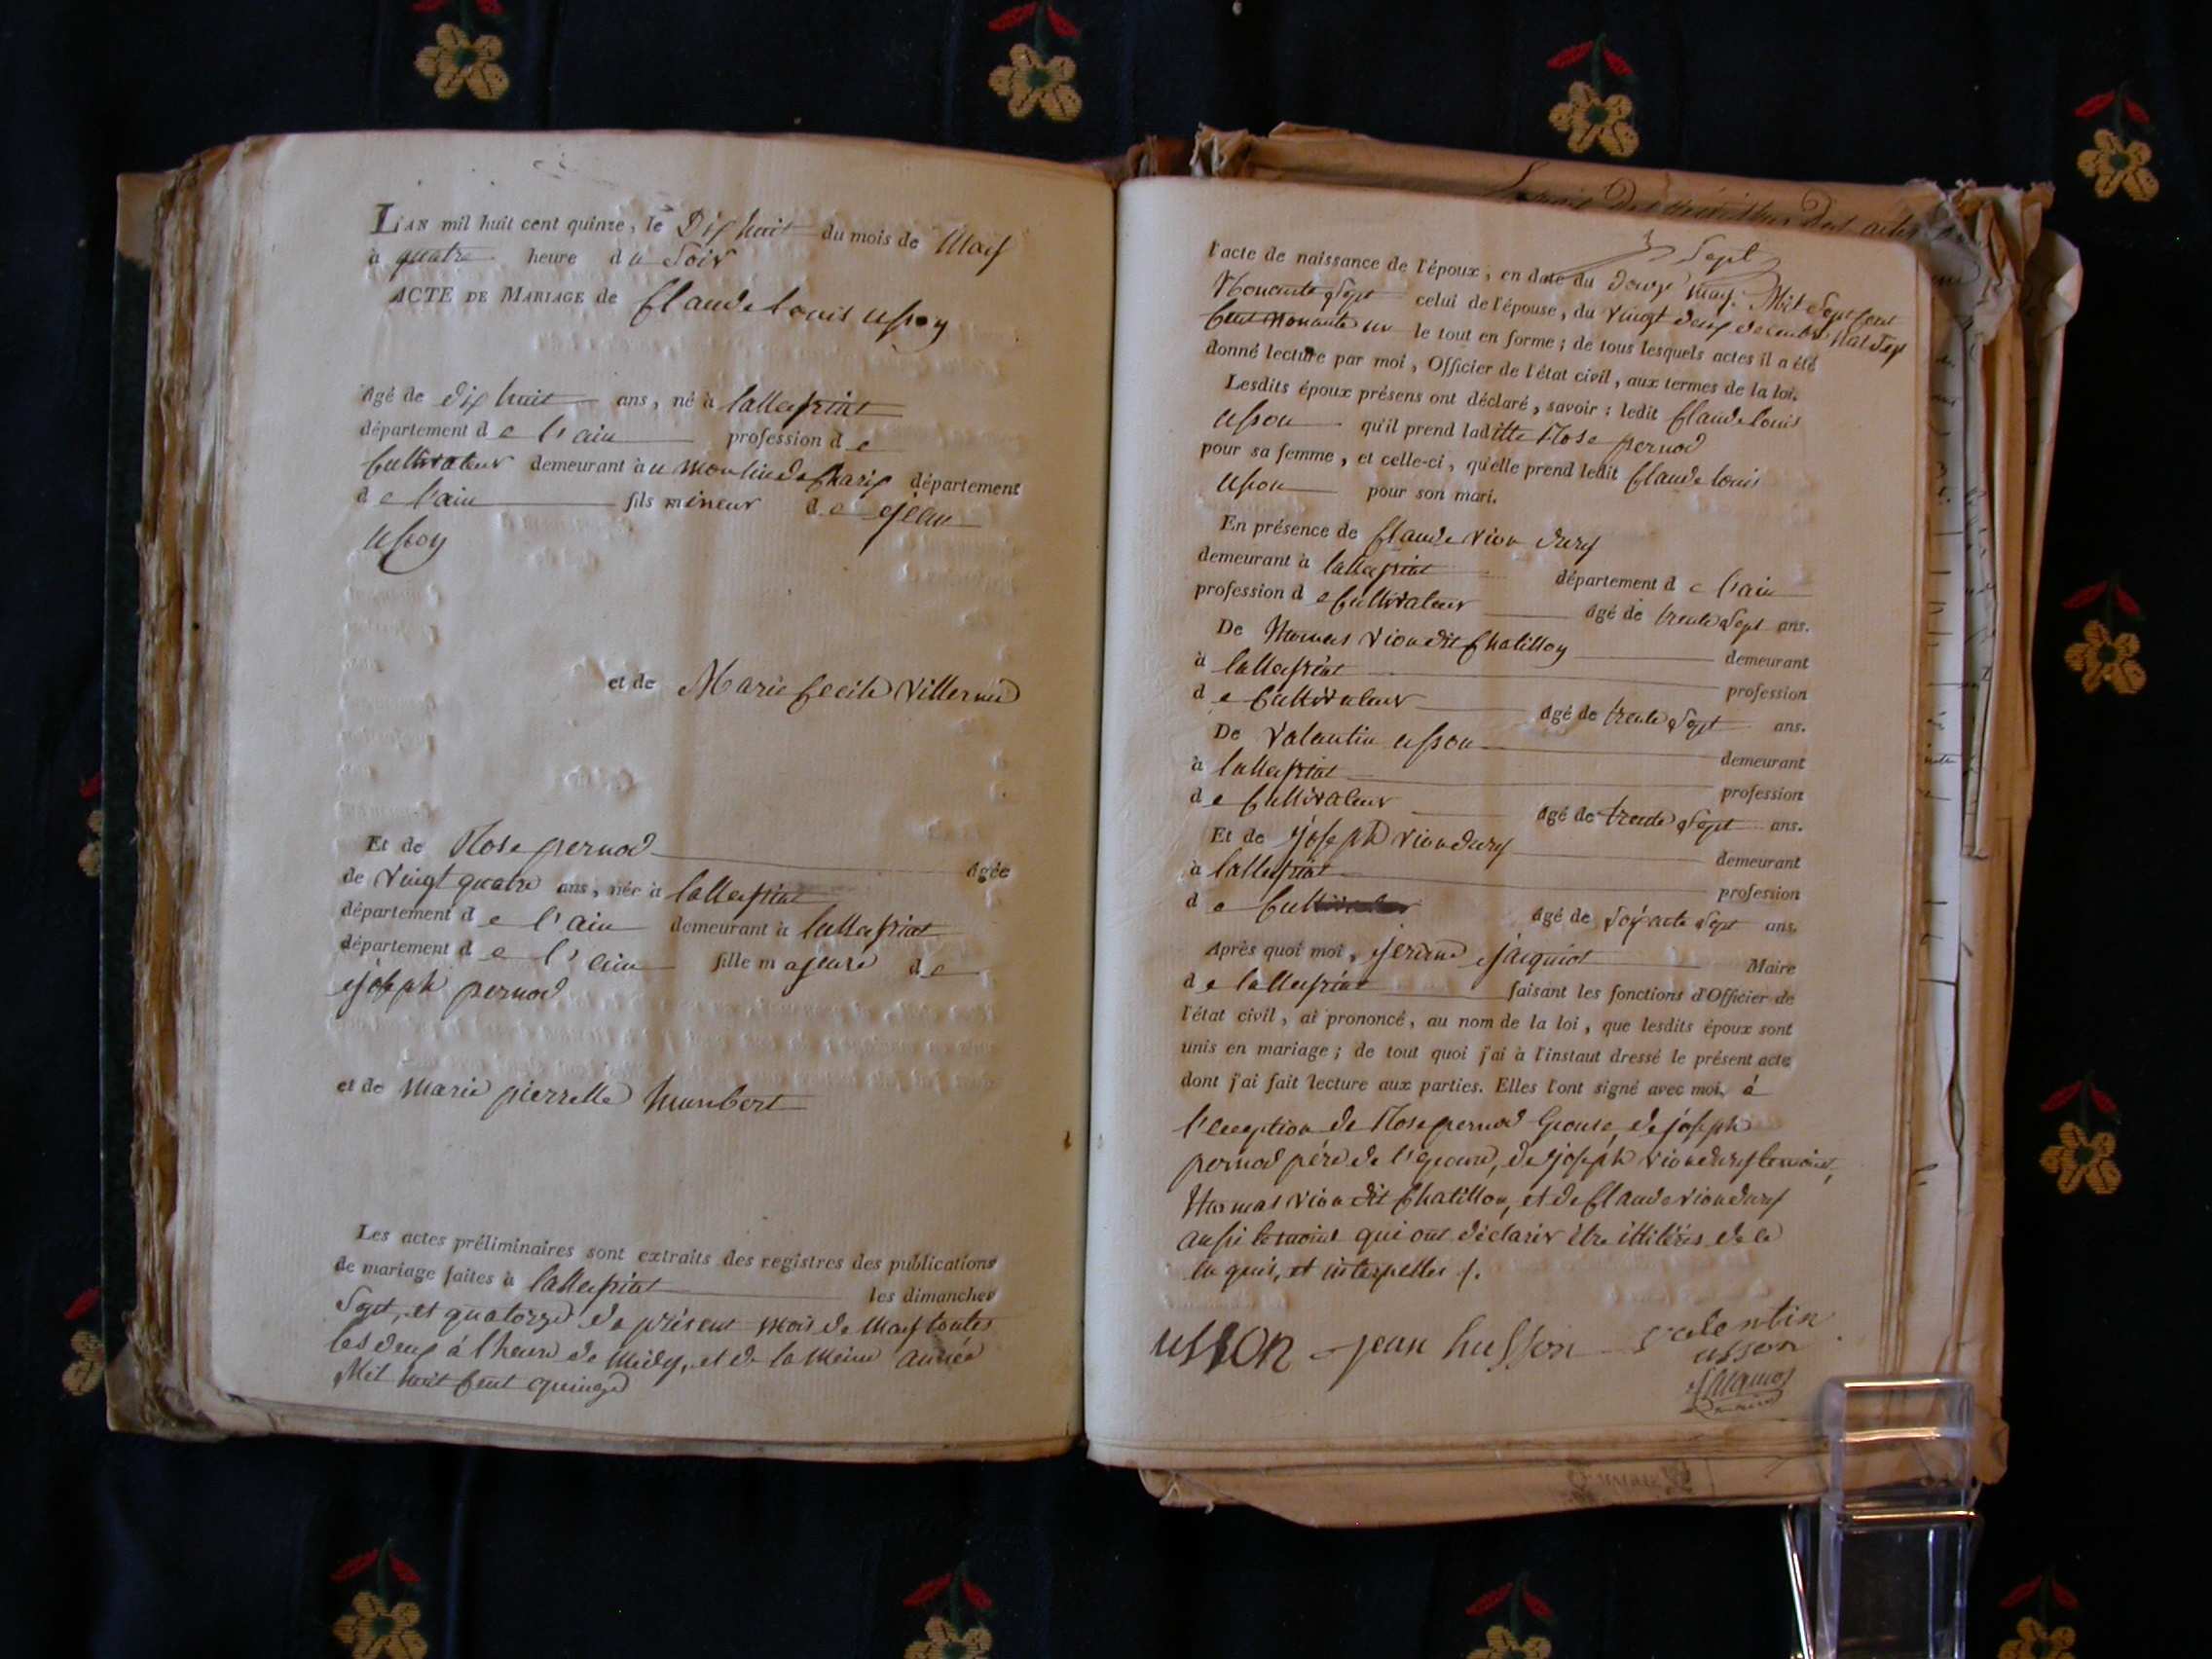 L'AN mil huit cent quinze, le Dix huit du mois de May
à quatre heure du Soir
ACTE DE MARIAGE de Claude Louis usson
agé de dix huit ans, né à lalleyriat
département de l'ain profession de
Cultivateur demeurant au moulin de Charix département
de l'ain fils mineur de jean
usson
et de Marie Cecile Villermé
Et de Rose pernod agée
de vingt quatre ans, née à lalleyriat
département de l'ain demeurant à lalleyriat
département de l'ain fille majeure de
joseph pernod
et de Marie pierrette humbert
Les actes préliminaires sont extraits des registres des publications
de mariage faites à lalleyriat les dimanches
Sept, et quatorze du présent mois de May toutes
les deux à l'heure de Midy, et de la Meme année
Mil huit Cent quinze
Sept
l'acte de naissance de l'époux, en date du douze may Mil Sept Cent
Nonante Sept celui de l'épouse, du vingt deux decembre Mil Sept
Cent Nonante un le tout en forme ; de tous lesquels actes il a été
donné lecture par moi, Officier de l'état civil, aux termes de la loi.
Lesdits époux présens ont déclaré, savoir : ledit Claude Louis
usson qu'il prend laditte Rose pernod
pour sa femme, et celle-ci, qu'elle prend ledit Claude Louis
usson pour son mari.
En présence de Claude Vion dury
demeurant à lalleyriat département de l'ain
profession de Cultivateur agé de trente Sept ans.
De Thomas Vion dit Chatillon demeurant
à lalleyriat profession
de Cultivateur agé de trente Sept ans.
De Valantin usson demeurant
à lalleyriat profession
de Cultivateur agé de trente Sept ans.
Et de joseph Vion dury demeurant
à lalleyriat profession
de Cultivateur agé de Soixante Sept ans.
Après quoi moi, jerôme jacquiot Maire
de lalleyriat faisant les fonctions d'Officier de
l'état civil, ai prononcé, au nom de la loi, que lesdits époux sont
unis en mariage ; de tout quoi j'ai à l'instant dressé le présent acte
dont j'ai fait lecture aux parties. Elles l'ont signé avec moi, à
l'exeption de Rose pernod Epouse, de joseph
pernod père de l'epouse, de joseph Vion dury temoins,
Thomas Vion dit Chatillon, et de Claude Vion dury
aussi temoins qui ont déclarer être illitérés de ce
enquis, et interpelles /.
usson jean husson valentin
usson